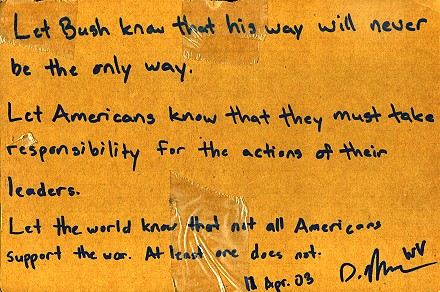 Let Bush know that his way will never
be the only way.
Let Americans know that they must take
responsibility for the actions of their
leaders.
Let the world know that not all Americans
support the war. At least one does not.
18 Apr. 03 D. WV